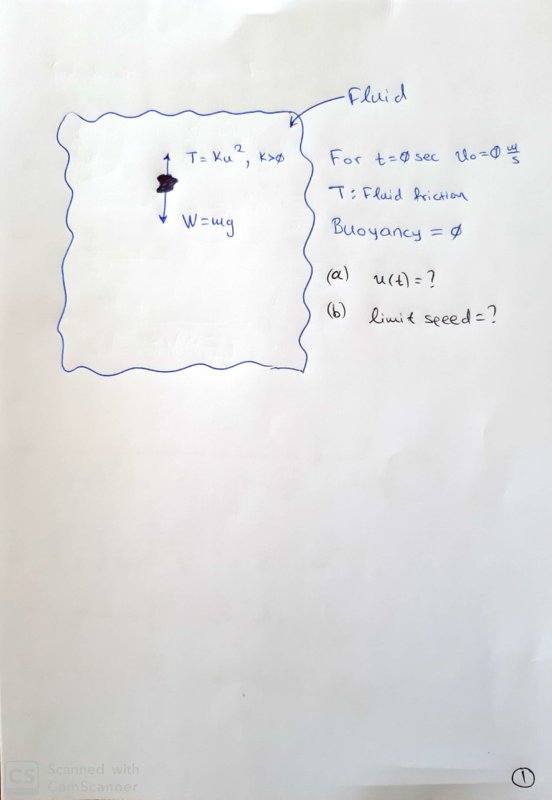 Fluid
T = Ku², K>0
For t=0 sec u₀=0 m/s
T: Fluid friction
W=mg
Buoyancy = 0
(a) u(t) = ?
(b) limit speed = ?
CS Scanned with
CamScanner
1